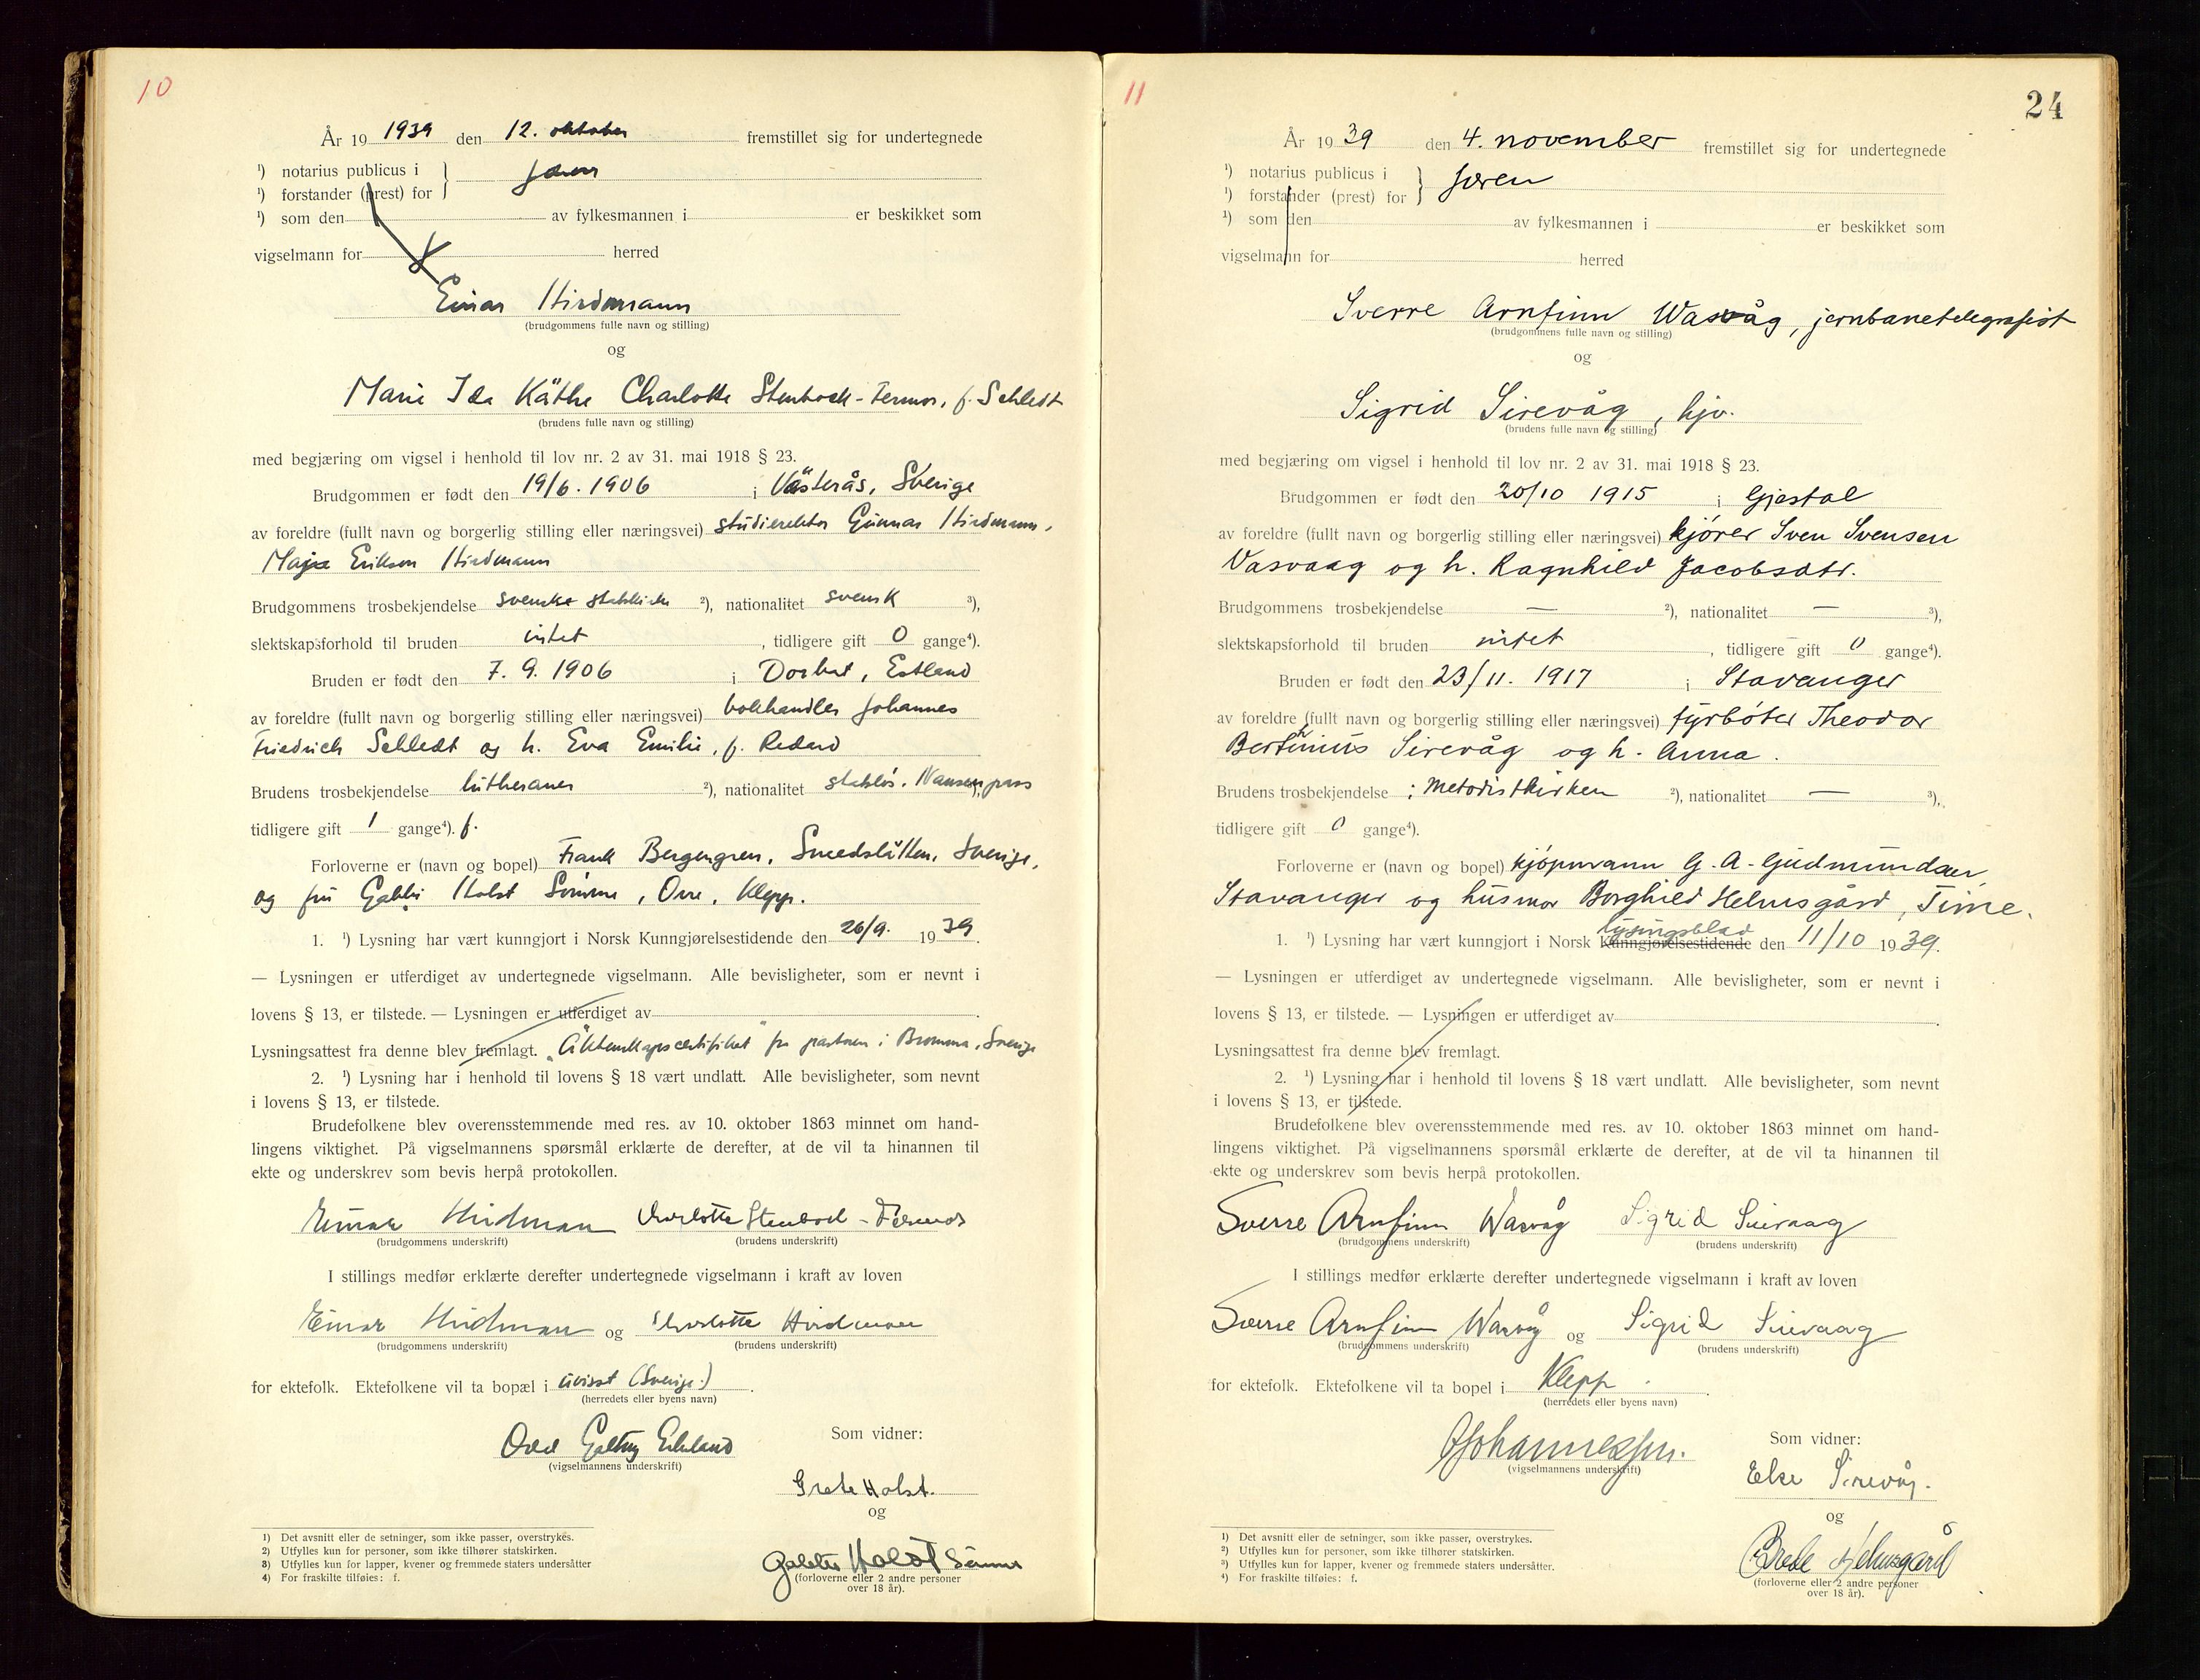 10
År 19 1939 den 12. oktober fremstillet sig for undertegnede
¹) notarius publicus i
¹) forstander (prest) for } Jæren
¹) som den av fylkesmannen i er beskikket som
vigselmann for herred
Einar Hirdmann
(brudgommens fulle navn og stilling)
og
Marie Ida Käthe Charlotte Stenbock-Fermor, f. Schledt
(brudens fulle navn og stilling)
med begjæring om vigsel i henhold til lov nr. 2 av 31. mai 1918 § 23.
Brudgommen er født den 19/6. 1906 i Västerås, Sverige
av foreldre (fullt navn og borgerlig stilling eller næringsvei) studierektor Gunnar Hirdmann,
Maja Erikson Hirdmann
Brudgommens trosbekjendelse svenske statskirke ²), nationalitet svensk ³),
slektskapsforhold til bruden intet , tidligere gift 0 gange⁴).
Bruden er født den 7. 9. 1906 i Dorpat, Estland
av foreldre (fullt navn og borgerlig stilling eller næringsvei) bokhandler Johannes
Friedrich Schledt og h. Eva Emilie, f. Redard
Brudens trosbekjendelse lutheraner ²), nationalitet statsløs. Nansenpass
tidligere gift 1 gange⁴). f.
Forloverne er (navn og bopel) Frank Bergengren, Smedslätten, Sverige,
og fru Gabbi Holst Sømme, Orre, Klepp.
1. ¹) Lysning har vært kunngjort i Norsk Kunngjørelsestidende den 26/9. 19 39.
— Lysningen er utferdiget av undertegnede vigselmann. Alle bevisligheter, som er nevnt i
lovens § 13, er tilstede. — Lysningen er utferdiget av
Lysningsattest fra denne blev fremlagt. „Äktenskapscertifikat" fra pastoren i Bromma, Sverige
2. ¹) Lysning har i henhold til lovens § 18 vært undlatt. Alle bevisligheter, som nevnt
i lovens § 13, er tilstede.
Brudefolkene blev overensstemmende med res. av 10. oktober 1863 minnet om hand-
lingens viktighet. På vigselmannens spørsmål erklærte de derefter, at de vil ta hinannen til
ekte og underskrev som bevis herpå protokollen.
Einar Hirdman Charlotte Stenbock-Fermor
(brudgommens underskrift) (brudens underskrift)
I stillings medfør erklærte derefter undertegnede vigselmann i kraft av loven
Einar Hirdman og Charlotte Hirdman
(brudgommens underskrift) (brudens underskrift)
for ektefolk. Ektefolkene vil ta bopæl i uvisst (Sverige.)
(herredets eller byens navn)
Odd Galtung Eskeland
(vigselmannens underskrift)
Som vidner:
Grete Holst.
og
Holst Sømme
(forloverne eller 2 andre personer
over 18 år).
¹) Det avsnitt eller de setninger, som ikke passer, overstrykes.
²) Utfylles kun for personer, som ikke tilhører statskirken.
³) Utfylles kun for lapper, kvener og fremmede staters undersåtter
⁴) For fraskilte tilføies: f.
11
24
År 19 39 den 4. november fremstillet sig for undertegnede
¹) notarius publicus i
¹) forstander (prest) for } Jæren
¹) som den av fylkesmannen i er beskikket som
vigselmann for herred
Sverre Arnfinn Wasvåg, jernbanetelegrafist
(brudgommens fulle navn og stilling)
og
Sigrid Sirevåg, hjv.
(brudens fulle navn og stilling)
med begjæring om vigsel i henhold til lov nr. 2 av 31. mai 1918 § 23.
Brudgommen er født den 20/10 1915 i Gjestal
av foreldre (fullt navn og borgerlig stilling eller næringsvei) kjører Sven Svensen
Vasvaag og h. Ragnhild Jacobsdtr.
Brudgommens trosbekjendelse — ²), nationalitet — ³),
slektskapsforhold til bruden intet , tidligere gift 0 gange⁴).
Bruden er født den 23/11. 1917 i Stavanger
av foreldre (fullt navn og borgerlig stilling eller næringsvei) fyrbøter Theodor
Berthinius Sirevåg og h. Anna.
Brudens trosbekjendelse : Metodistkirken ²), nationalitet — ³),
tidligere gift 0 gange⁴).
Forloverne er (navn og bopel) kjøpmann G. A. Gudmundsen,
Stavanger og husmor Borghild Helmsgård, Time.
lysingsblad
1. ¹) Lysning har vært kunngjort i Norsk Kunngjørelsestidende den 11/10 19 39.
— Lysningen er utferdiget av undertegnede vigselmann. Alle bevisligheter, som er nevnt i
lovens § 13, er tilstede. — Lysningen er utferdiget av
Lysningsattest fra denne blev fremlagt.
2. ¹) Lysning har i henhold til lovens § 18 vært undlatt. Alle bevisligheter, som nevnt
i lovens § 13, er tilstede.
Brudefolkene blev overensstemmende med res. av 10. oktober 1863 minnet om hand-
lingens viktighet. På vigselmannens spørsmål erklærte de derefter, at de vil ta hinannen til
ekte og underskrev som bevis herpå protokollen.
Sverre Arnfinn Wasvåg Sigrid Sirevaag
(brudgommens underskrift) (brudens underskrift)
I stillings medfør erklærte derefter undertegnede vigselmann i kraft av loven
Sverre Arnfinn Wasvåg og Sigrid Sirevaag
(brudgommens underskrift) (brudens underskrift)
for ektefolk. Ektefolkene vil ta bopel i Klepp.
(herredets eller byens navn)
Johannessen.
(vigselmannens underskrift)
Som vidner:
Else Sirevåg.
og
Brede Helmsgård
(forloverne eller 2 andre personer
over 18 år).
¹) Det avsnitt eller de setninger, som ikke passer, overstrykes.
²) Utfylles kun for personer, som ikke tilhører statskirken.
³) Utfylles kun for lapper, kvener og fremmede staters undersåtter.
⁴) For fraskilte tilføies: f.